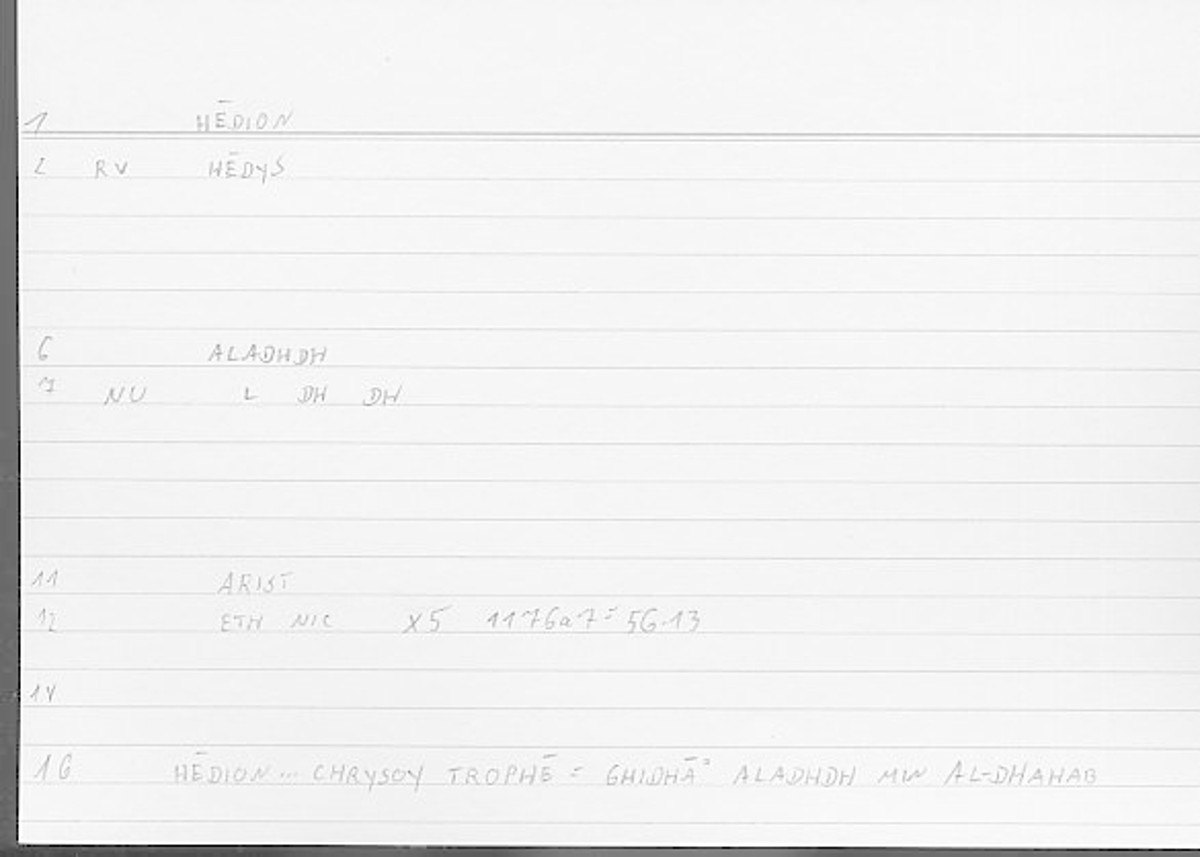 1 HĒDION
2 RV HĒDYS
6 ALADHDH
7 NU L DH DH
11 ARIST
12 ETH NIC X5 1176a7= 56.13
14
16 HĒDION... CHRYSOY TROPHĒ = GHIDHĀ' ALADHDH MIN AL-DHAHAB